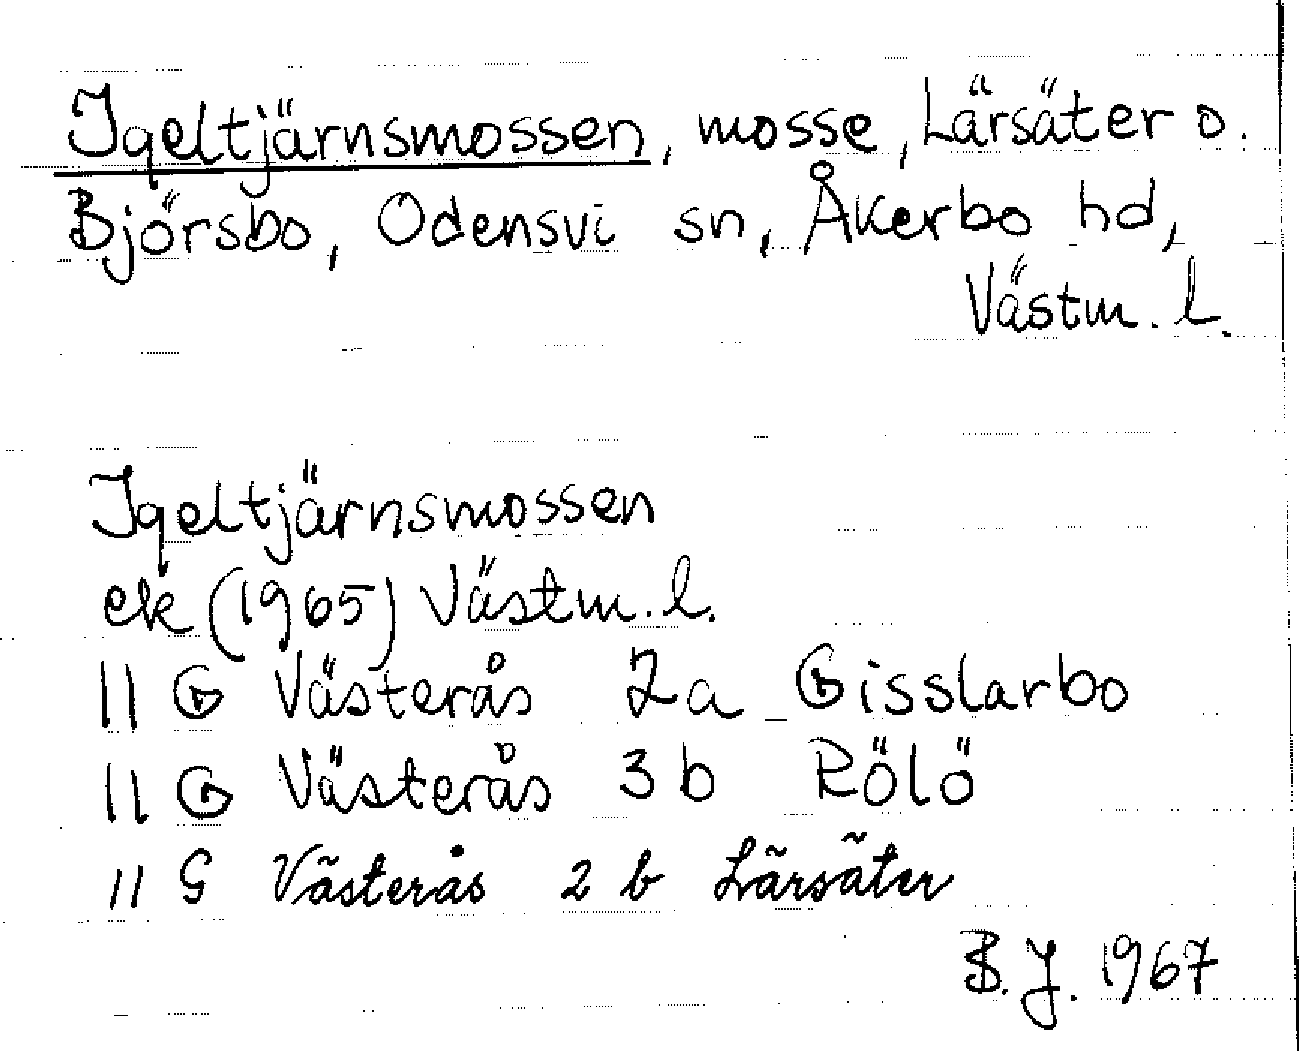 Igeltjärnsmossen, mosse, Lärsäter o.
Björsbo, Odensvi sn, Åkerbo hd,
Västm. l.
Igeltjärnsmossen
ek (1965) Västm. l.
11 G Västerås 2a Gisslarbo
11 G Västerås 3b Rölö
11 G Västerås 2 b Lärsäter
B.J. 1967